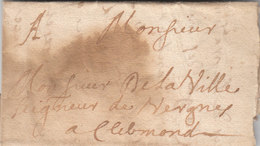 A Monsieur
Monsieur De La Ville
seigneur des Vergnes
a Clebmond